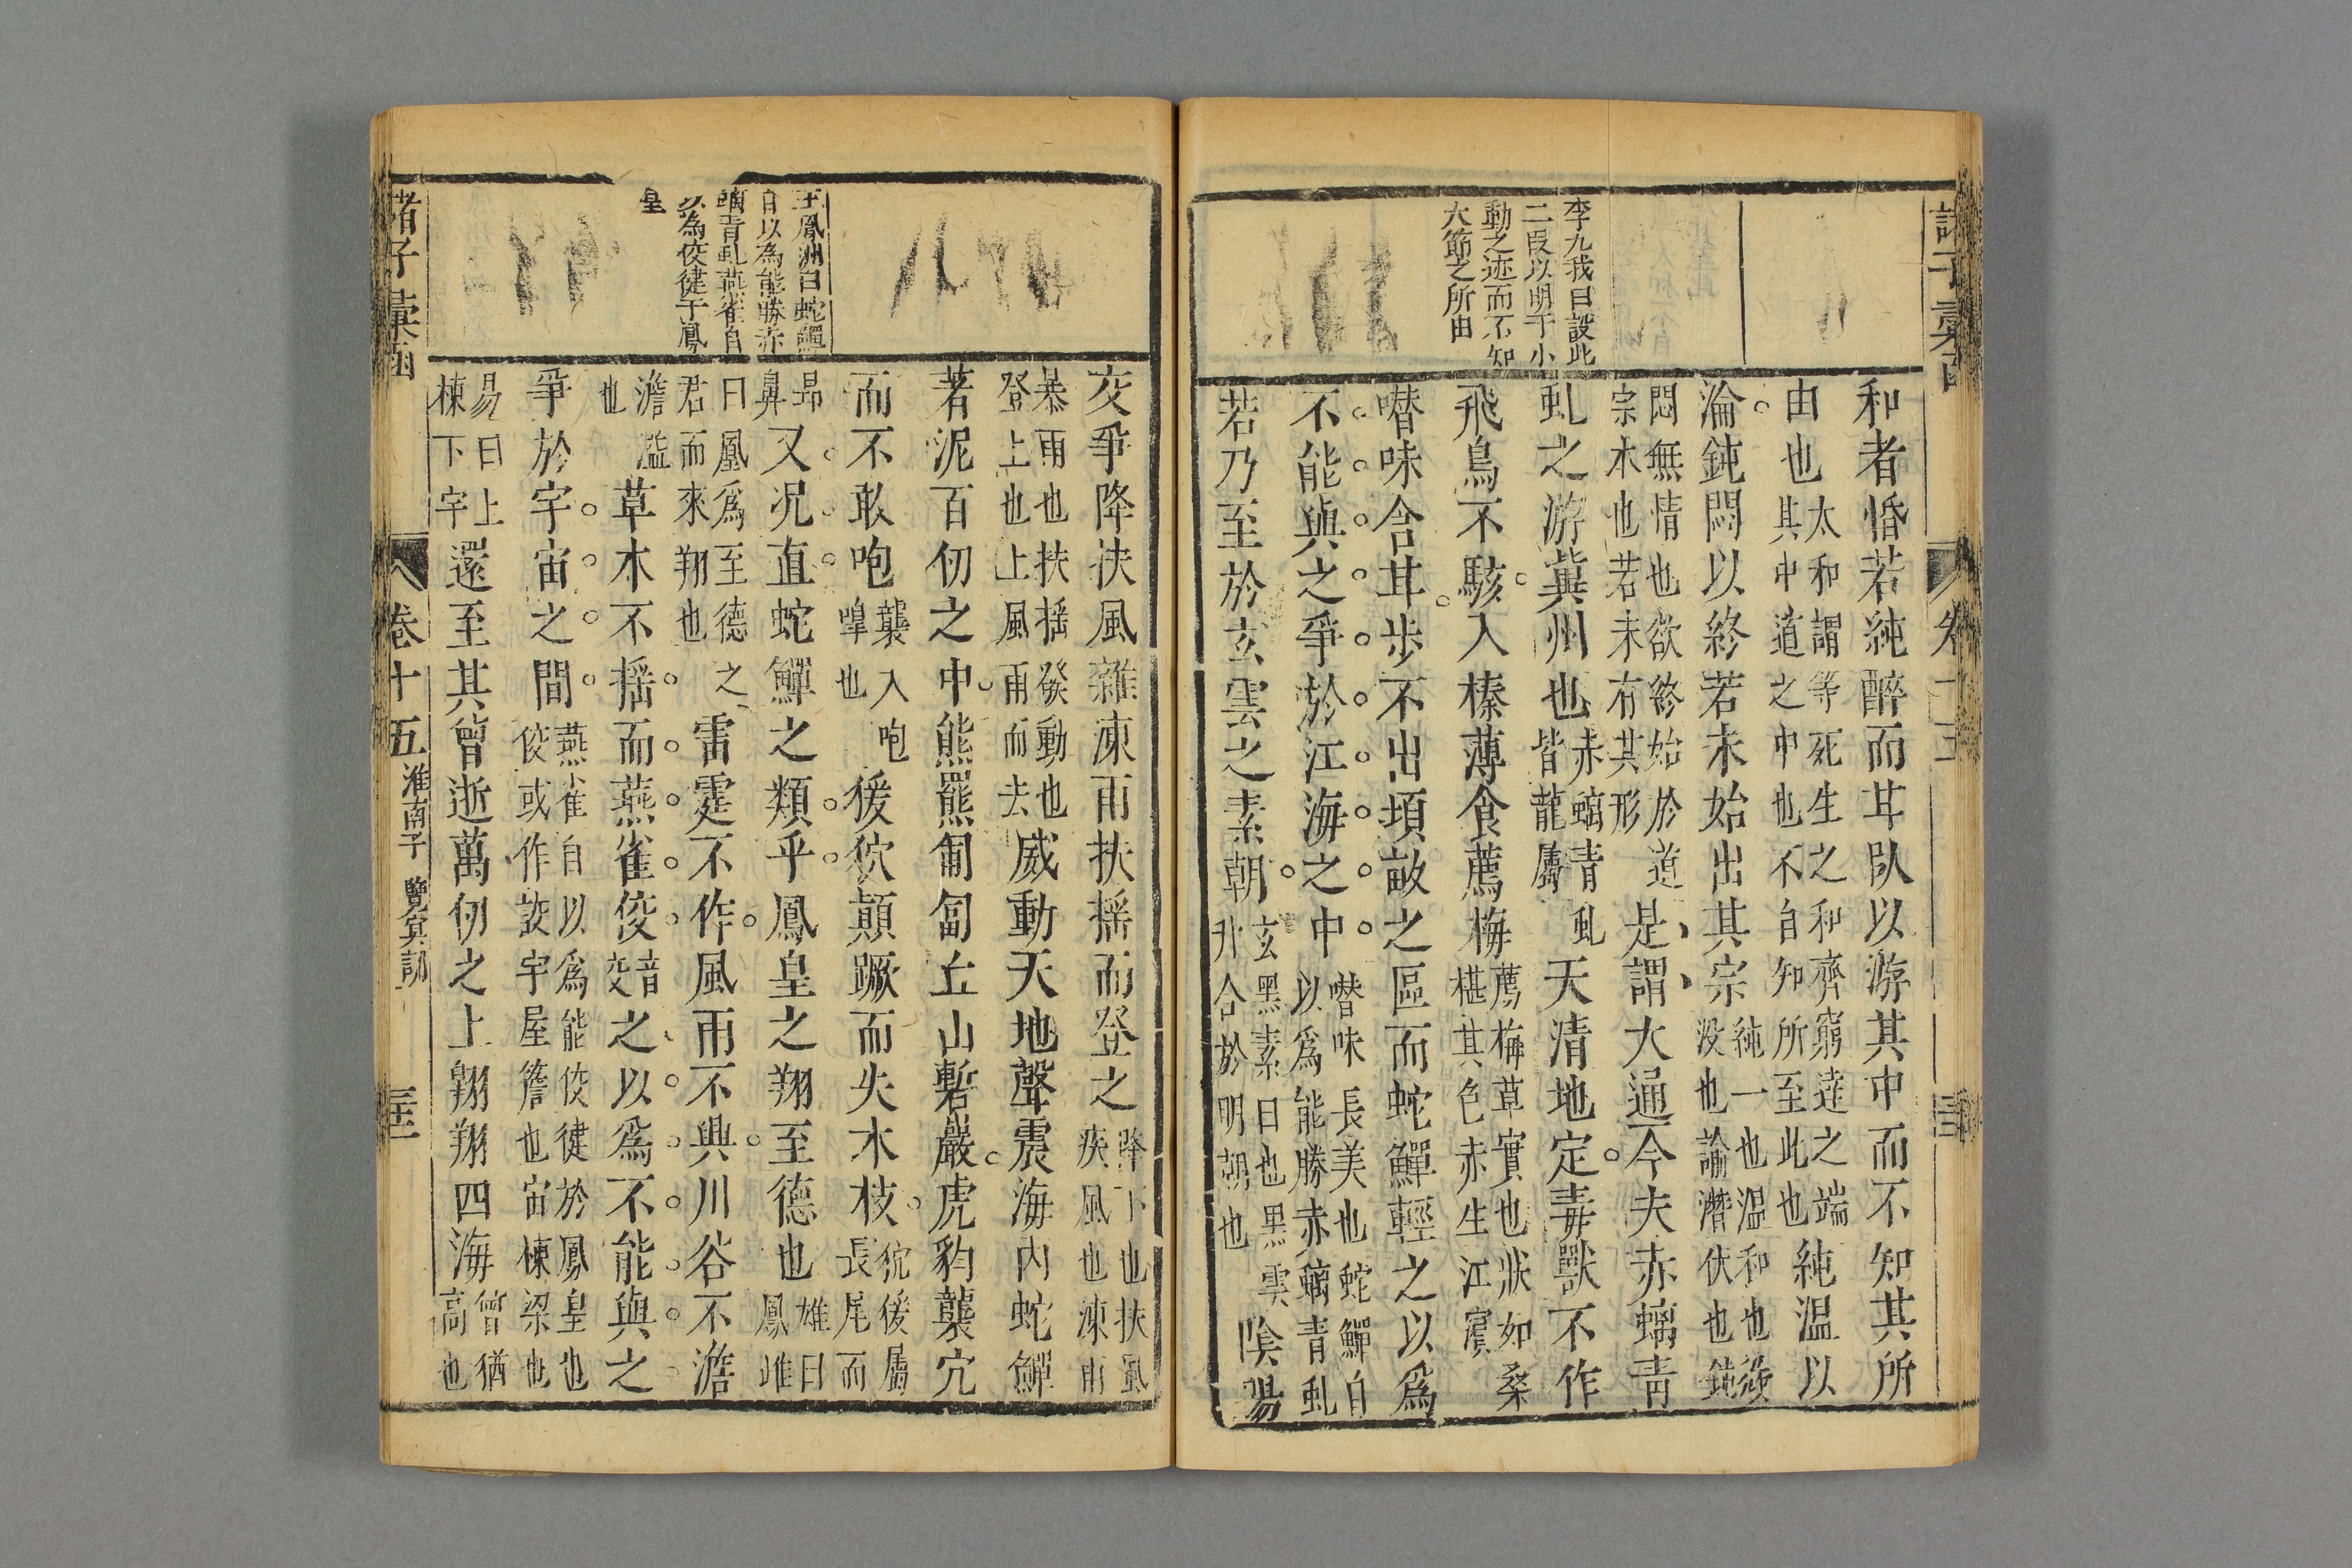 李九我曰設此
二段以明于小
動之迹而不知
大節之所由
和者惛若純醉而甘臥以游其中而不知其所
由也太和謂等死生之和齊窮達之端
其中道之中也不自知所至此也純温以
淪鈍悶以終若未始出其宗純一也温和也淪
没也論潛伏也鈍
悶無情也欲終始於道
宗本也若未有其形是謂大通今夫赤螭青
虬之游冀州也赤螭青虬
皆龍屬天清地定毒獸不作
飛鳥不駭入榛薄食薦梅薦梅草實也狀如桑
椹其色赤生江濱
噆味含甘步不出頃畝之區而蛇鱓輕之以爲
不能與之爭於江海之中噆味長美也蛇鱓自
以爲能勝赤螭青虬
若乃至於玄雲之素朝玄黑素白也黑雲
升合於明朝也陰陽
王鳳洲曰蛇鱓
自以為能勝赤
螭青虬燕雀自
以為佼徤于鳳
皇
交爭降泱風雜凍雨扶摇而登之降下也扶風
疾風也凍雨
暴雨也扶摇發動也
登上也上風雨而去威動天地聲震海内蛇鱓
著泥百仞之中熊羆匍匐丘山磛巖虎豹襲穴
而不敢咆襲入咆
嘷也猨狖顛蹶而失木枝狖猨屬
長尾而
昻
鼻又况直蛇鱓之類乎鳳皇之翔至德也雄曰
鳳雌
曰凰爲至德之
君而來翔也雷霆不作風雨不興川谷不澹
澹溢
也草木不摇而燕雀佼音
交之以爲不能與之
爭於宇宙之間燕雀自以爲能佼徤於鳳皇也
佼或作詨宇屋簷也宙棟梁也
易曰上
棟下宇還至其曾逝萬仞之上翱翔四海曾猶
高也
諸子彙函
卷十五
淮南子
覽冥訓